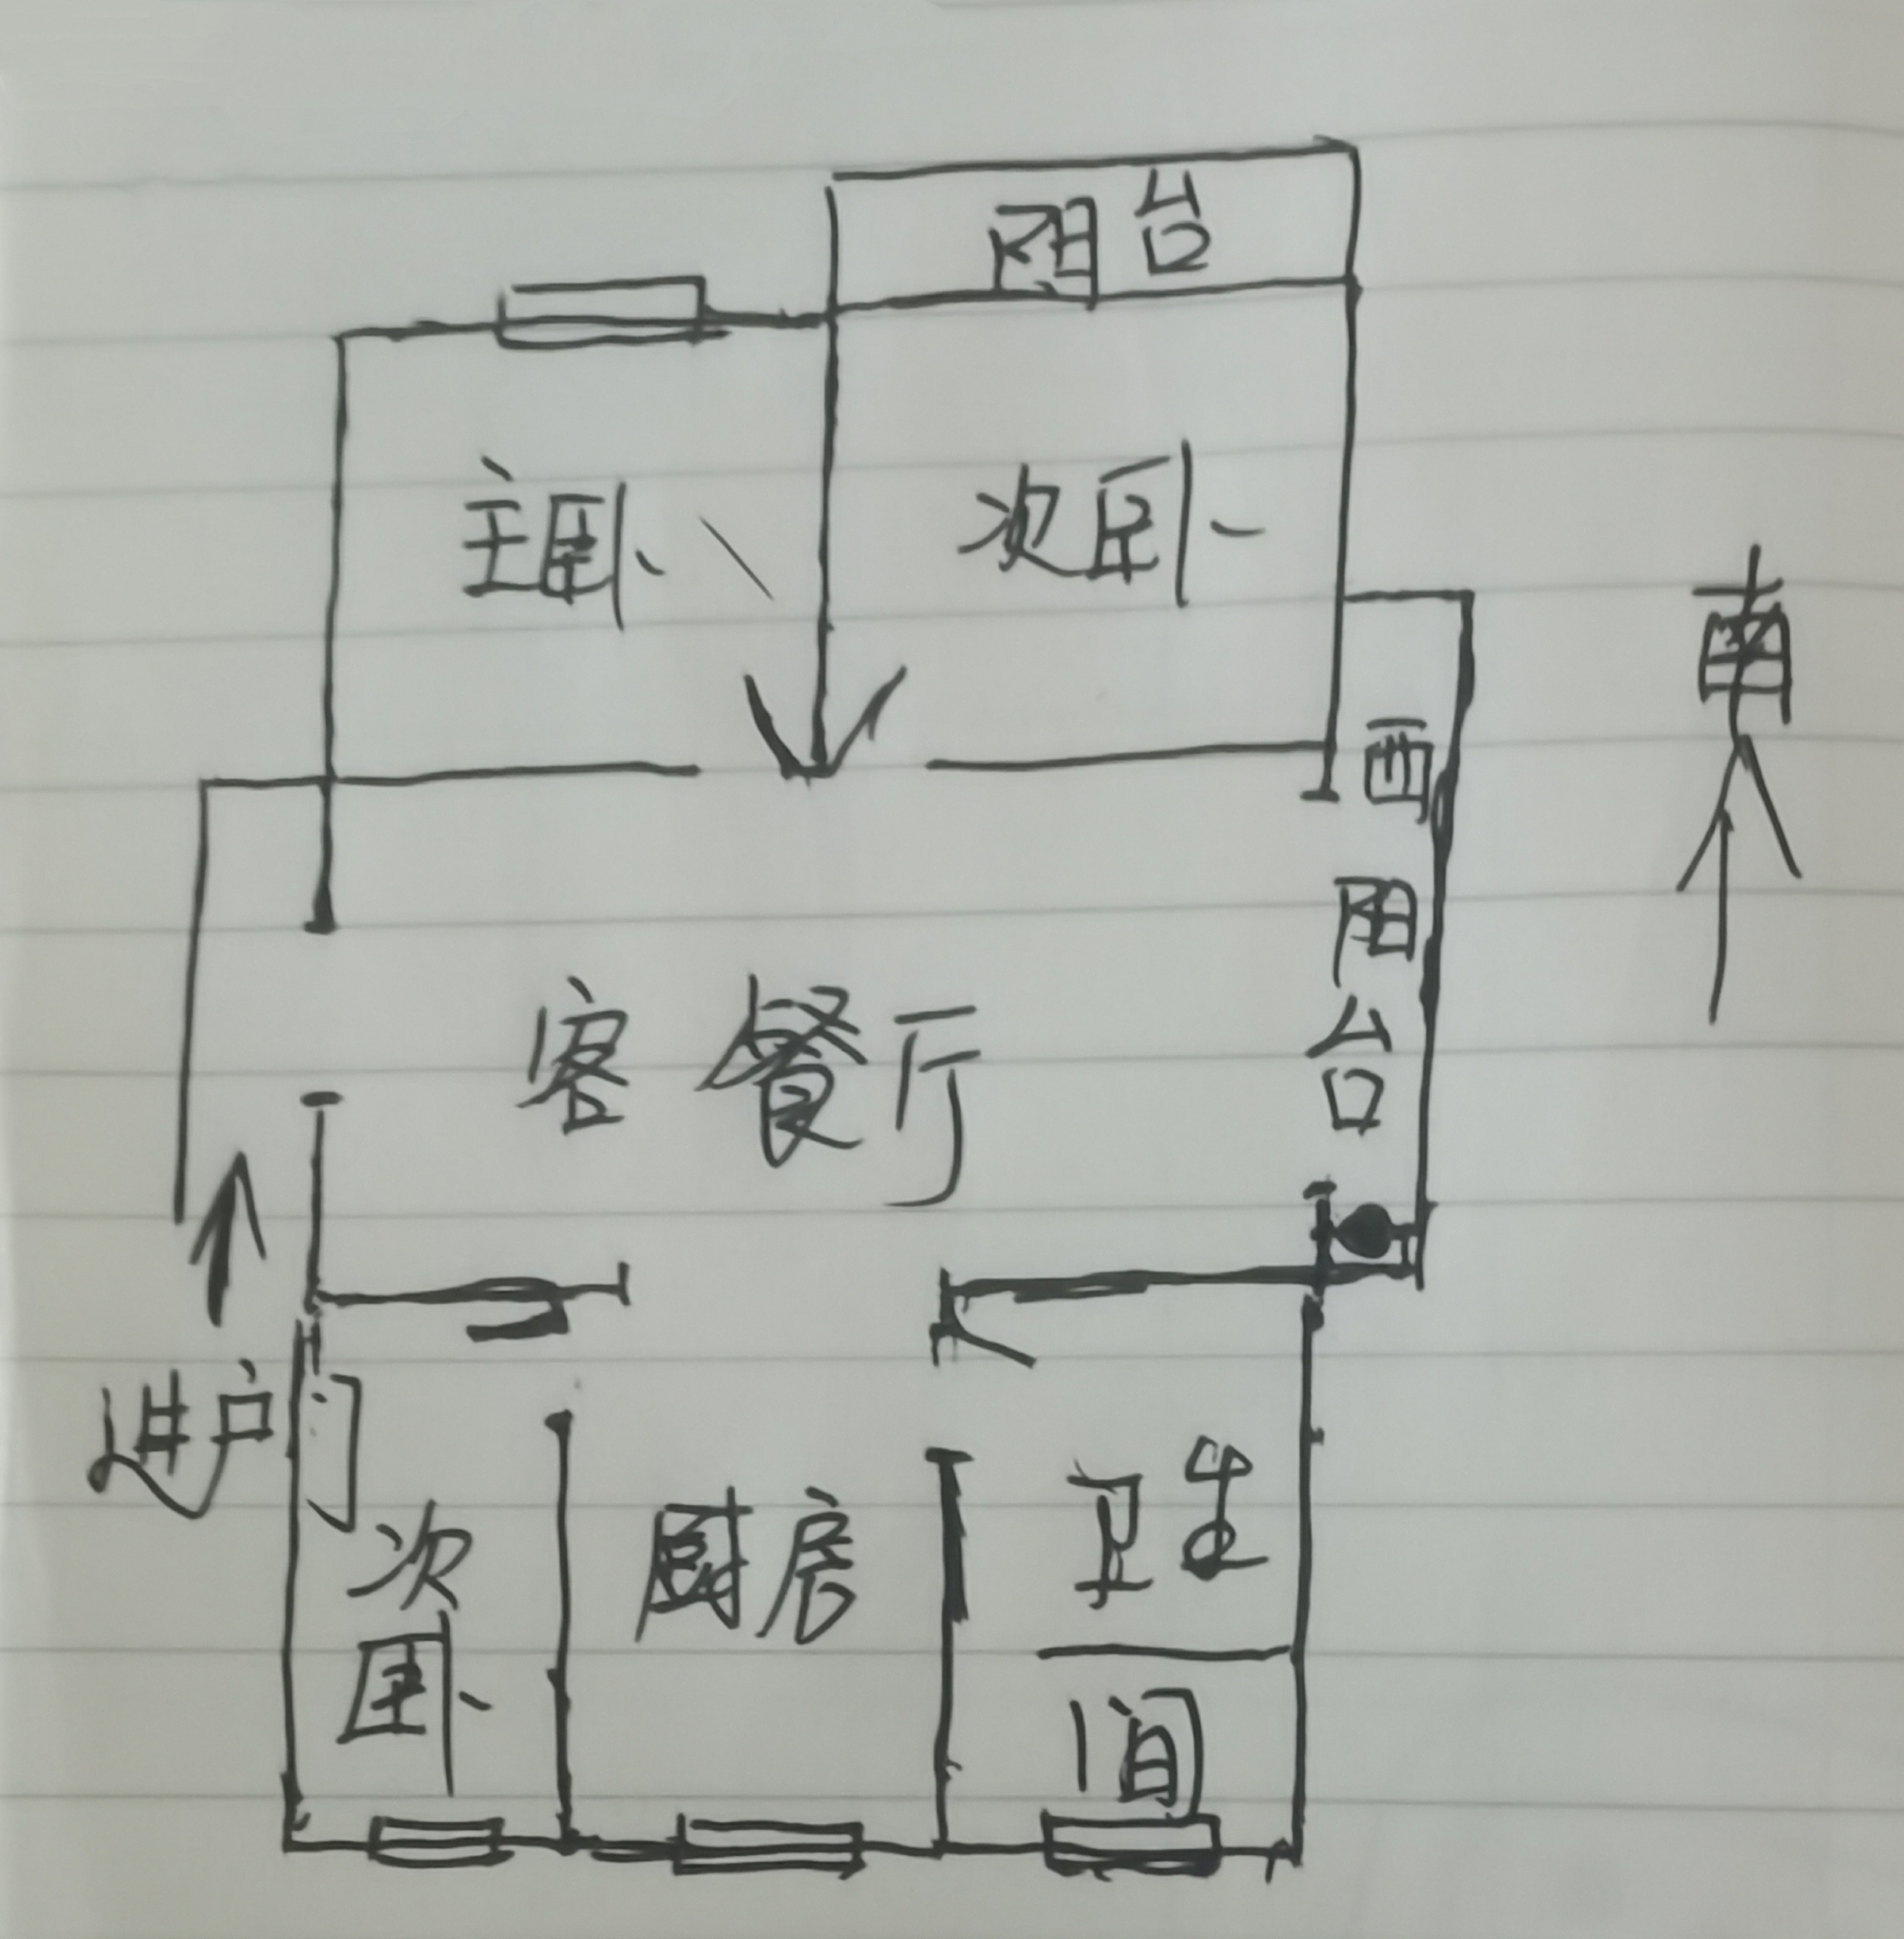 阳台
主卧
次卧
南
西阳台
客餐厅
进户门
次卧
厨房
卫生间